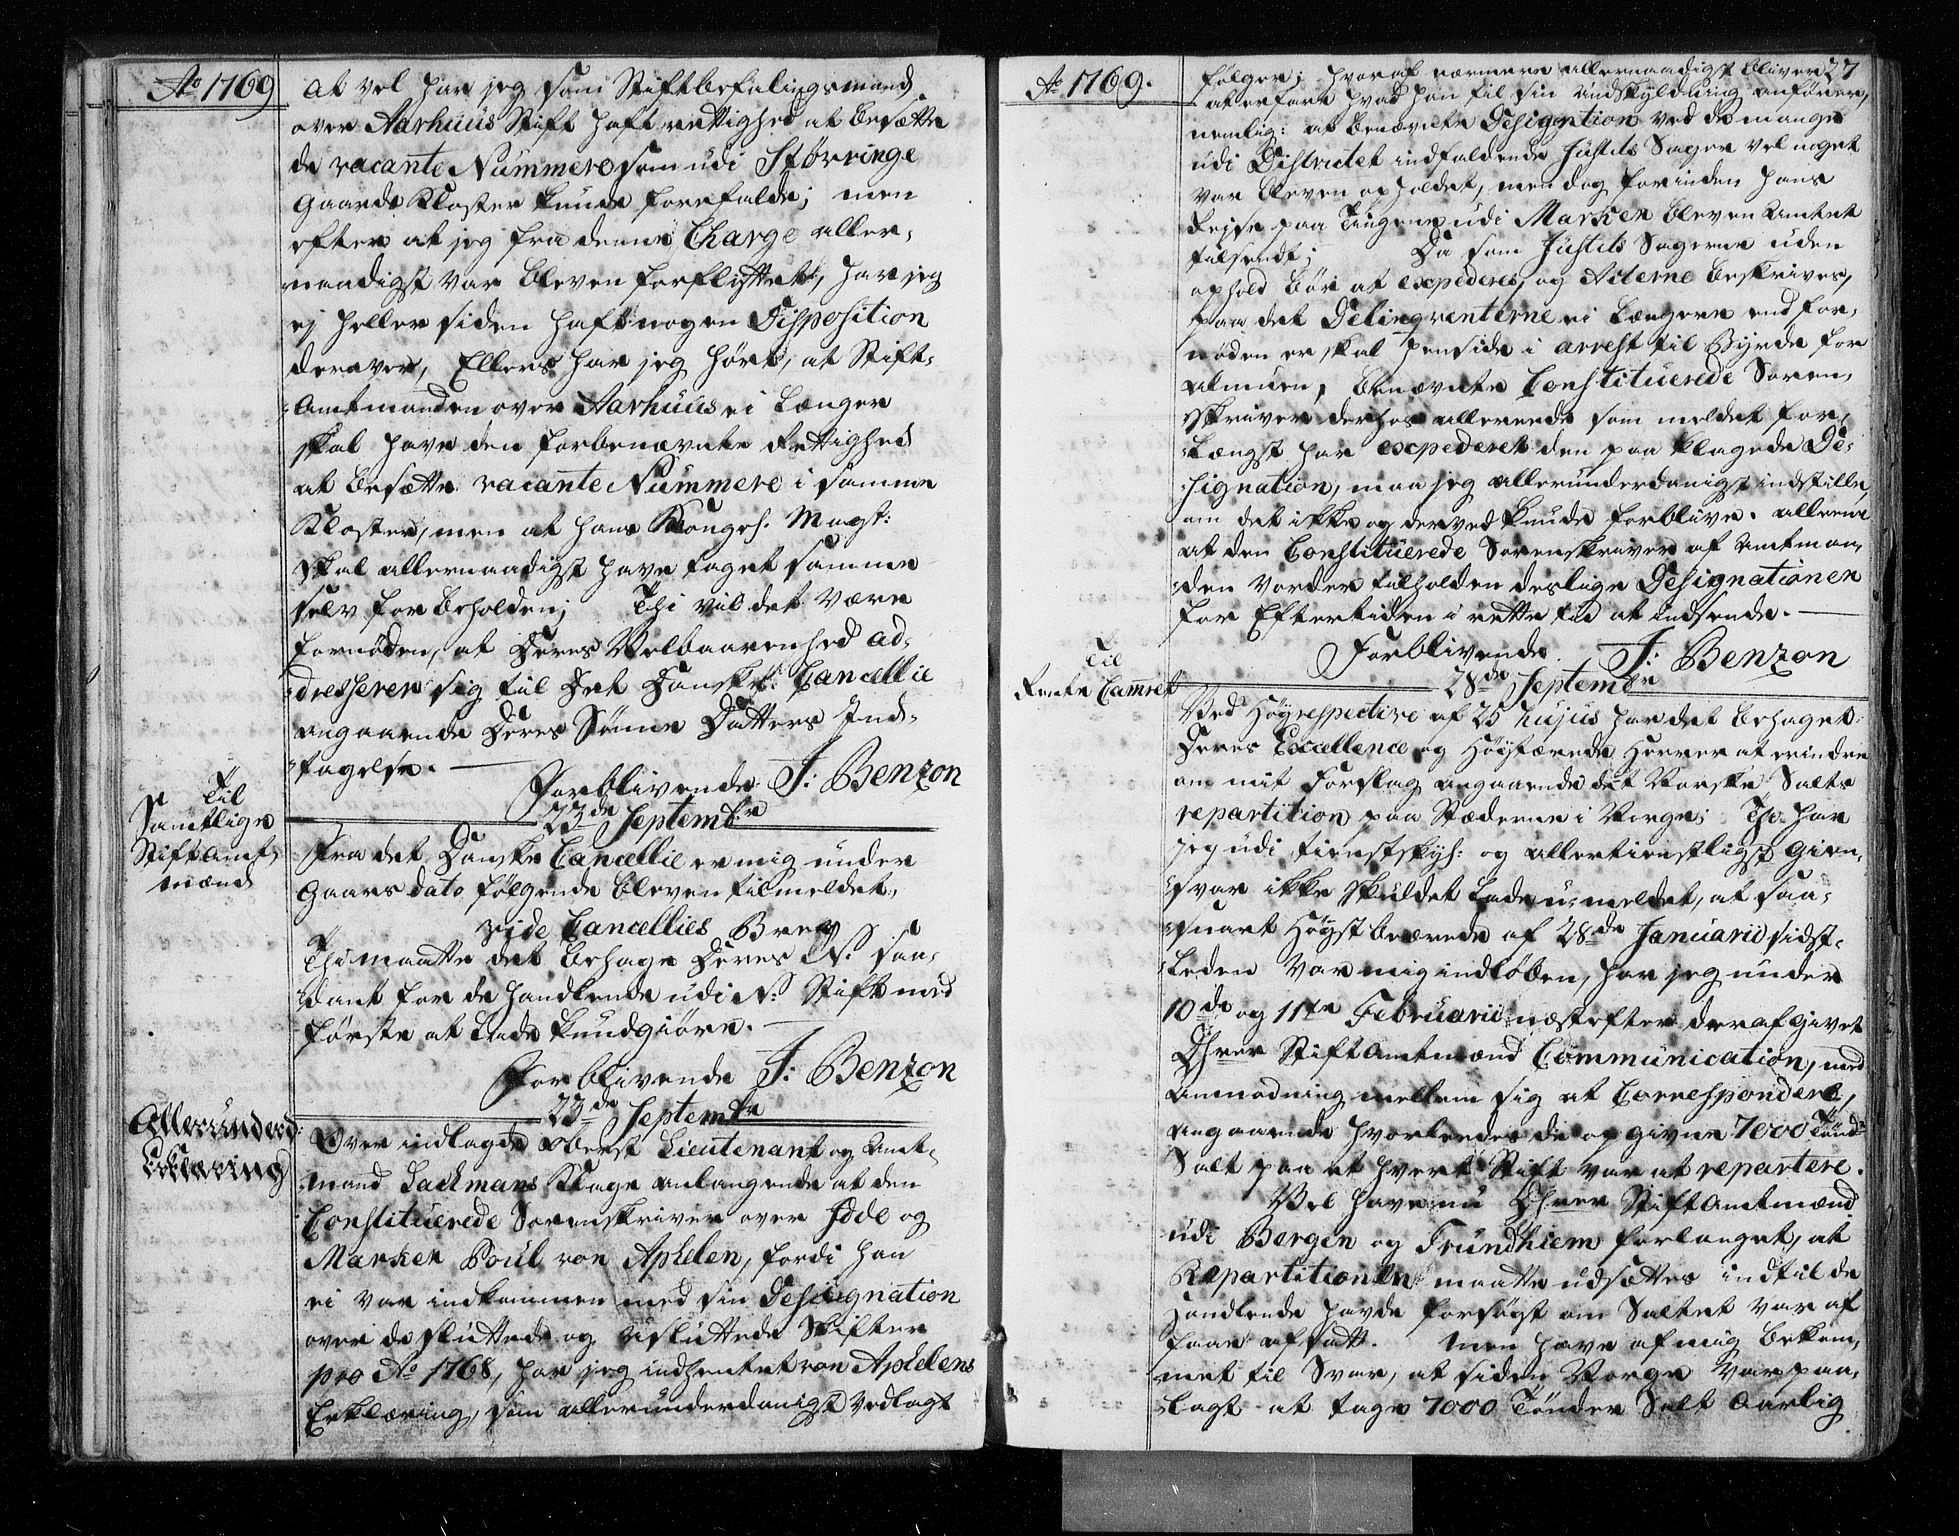 Ao 1769
at vel har jeg som Stiftbefalingsmand
over Aarhuus Stift haft rettighed at besætte
de vacante Nummere som udi Støvringe
Gaards Kloster kunde forefalde; men
efter at jeg fra denne Charge aller-
naadigst var bleven forflyttet, har jeg
ej heller siden haft nogen Disposition
derover, Ellers har jeg hørt, at Stift-
Amtmanden over Aarhuus ei længer
skal have den forbenævnte Rettighed
at besætte vacante Nummere i samme
Kloster, men at hans Kongel. Mayt:
skal allernaadigst have taget samme
selv forbeholden; Thi vil det være
fornøden, at Deres Velbaarenhed ad-
dresserer sig til Det Danske Cancellie
angaaende Deres Sønne Datters Ind-
tagelse.
Forblivende J: Benzon
23de Septembr
Til
Samtlige
Stiftamt-
mænd
Fra det Danske Cancellie er mig under
Gaars dato følgende bleven tilmeldet,
vide Cancellies Brev
Thi maatte det behage Deres N: saa-
dant for de handlende udi N: Stift med
første at lade kundgiøre.
Forblivende J: Benzon
23de Septembr
Allerunderd:
Erklæring
Over indlagde Oberst Lieutenant og Amt-
mand Lackmans Klage anlangende at den
Constituerede Sorenskriver over Idde og
Marker Poul von Aphelen, fordi han
ei var indkommen med sin Designation
over de sluttede og usluttede Skifter
pro Ao 1768, har jeg indhentet von Aphelens
Erklæring, som allerunderdanigst vedlagt
Ao 1769.
27
følger; hvoraf nærmere allernaadigst bliver
at erfare hvad han til sin undskyldning anfører,
nemlig: at benævnte Designtion ved de mange
udi Districtet indfaldende Justits Sager vel noget
var bleven opholdet, men dog forinden hans
Rejse paa Tingene udi Marker bleven Amtet
tilsendt; Da som Justits Sagerne uden
ophold bør at expederes, og Acterne beskrives,
paa det Delinqventerne ei længere end for-
nøden er skal hensidde i arrest til Byrde for
almuen, benævnte Constituerede Soren-
skriver derhos allerede som meldet for-
længst har expederet den paa klagede De-
signation, maa jeg allerunderdanigst indstille,
om det ikke og derved kunde forblive. allene
at den Constituerede Sorenskriver af Amtman-
den vorder tilholden deslige Designationer
for Eftertiden i rette tid at indsende.
Forblivende J: Benzon
28de Septembr
Til
Rente Camret
Med Høyrespective af 25 hujus har det behaget
Deres Excellence og Høystærede Herrer at erindre
om mit Forslag angaaende det Norske Salts
repartition paa Stæderne i Norge; Thi har
jeg udi tienstskyl: og allertienstligst Gien-
svar ikke skuldet lade u-meldet, at saa-
snart Høyst beærede af 28de Januarii sidst-
leden var mig indløben, har jeg under
10de og 11te Februarii næstefter deraf givet
Dhrer Stiftamtmænd Communication, med
anmodning mellem sig at Correspondere,
angaaende hvorledes de opgivne 7000 Tønd:
Salt paa et hvert Stift var at repartere.
Vel have nu Dhrer Stiftamtmænd
udi Bergen og Trundhiem forlanget, at
Repartitionen maatte udsættes indtil de
Handlende havde forsøgt om Saltet var af
faar afsatt. Men have af mig bekom-
met til Svar, at siden Norge var paa-
lagt at tage 7000 Tønder Salt Aarlig